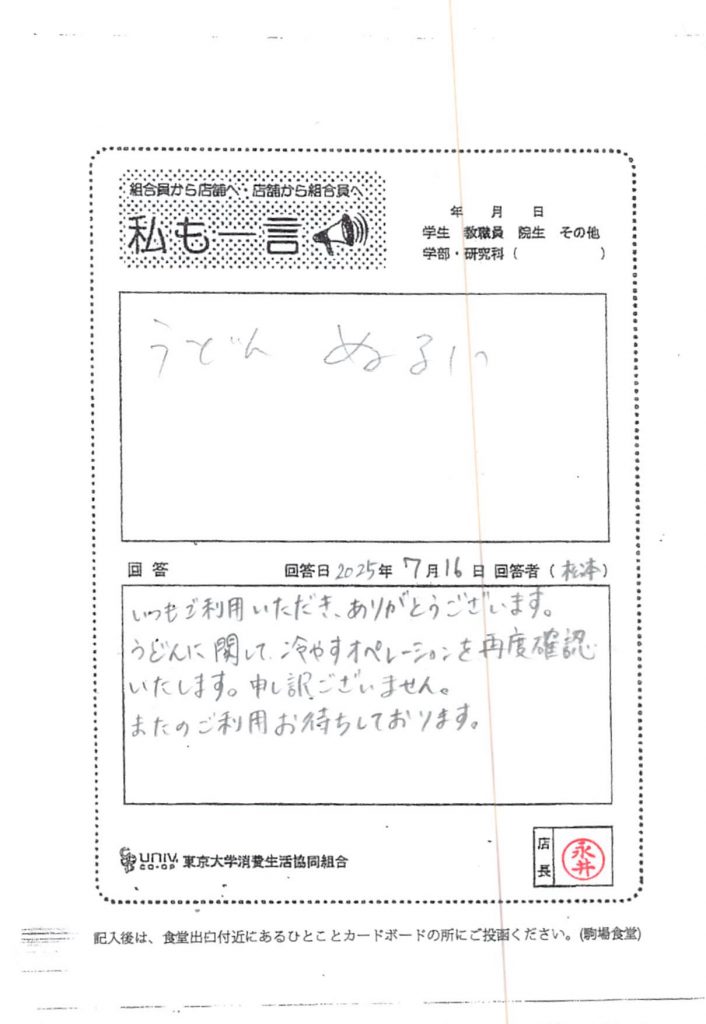 組合員から店舗へ・店舗から組合員へ
私も一言
年 月 日
学生 教職員 院生 その他
学部・研究科 ( )
うどん ぬるい
回答 回答日 2025年 7月16日 回答者 (松本)
いつもご利用いただき、ありがとうございます。
うどんに関して、冷やすオペレーションを再度確認
いたします。申し訳ございません。
またのご利用お待ちしております。
UNIV. CO-OP 東京大学消費生活協同組合
店長 永井
記入後は、食堂出口付近にあるひとことカードボードの所にご投函ください。(駒場食堂)